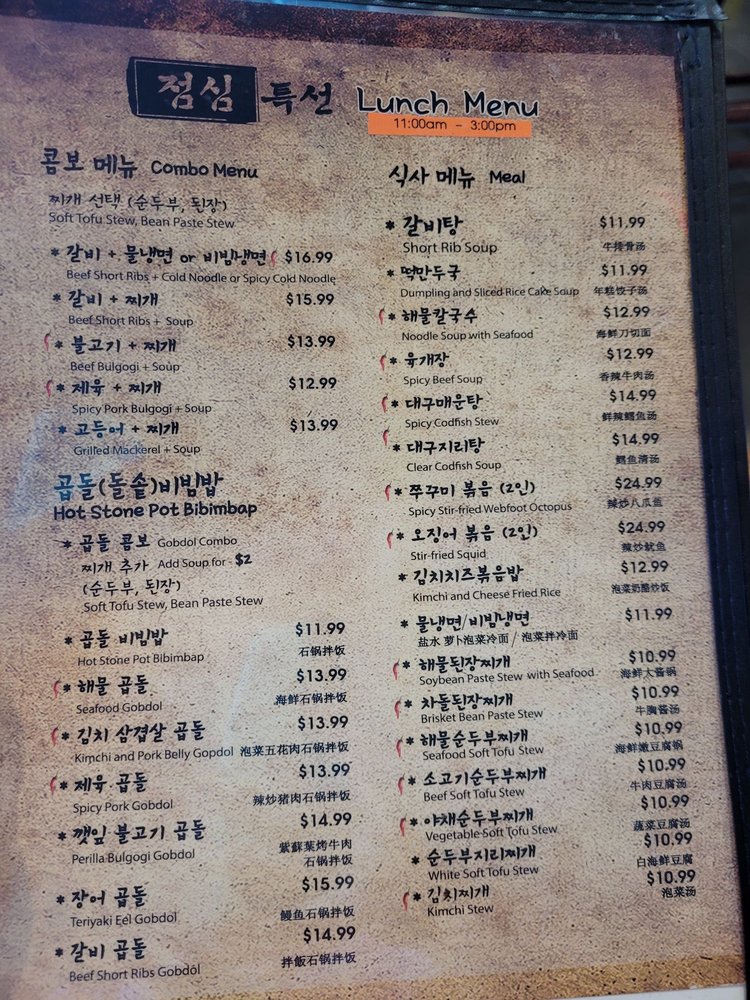 점심 특선 Lunch Menu
11:00am - 3:00pm
콤보 메뉴 Combo Menu
찌개 선택 (순두부, 된장)
Soft Tofu Stew, Bean Paste Stew
* 갈비 + 물냉면 or 비빔냉면 $16.99
Beef Short Ribs + Cold Noodle or Spicy Cold Noodle
* 갈비 + 찌개 $15.99
Beef Short Ribs + Soup
* 불고기 + 찌개 $13.99
Beef Bulgogi + Soup
* 제육 + 찌개 $12.99
Spicy Pork Bulgogi + Soup
* 고등어 + 찌개 $13.99
Grilled Mackerel + Soup
곱돌(돌솥)비빔밥
Hot Stone Pot Bibimbap
* 곱돌 콤보 Gobdol Combo
찌개 추가 Add Soup for $2
(순두부, 된장)
Soft Tofu Stew, Bean Paste Stew
* 곱돌 비빔밥 $11.99
Hot Stone Pot Bibimbap 石锅拌饭
* 해물 곱돌 $13.99
Seafood Gobdol 海鲜石锅拌饭
* 김치 삼겹살 곱돌 $13.99
Kimchi and Pork Belly Gopdol 泡菜五花肉石锅拌饭
* 제육 곱돌 $13.99
Spicy Pork Gobdol 辣炒猪肉石锅拌饭
* 깻잎 불고기 곱돌 $14.99
Perilla Bulgogi Gobdol 紫蘇葉烤牛肉
石锅拌饭
* 장어 곱돌 $15.99
Teriyaki Eel Gobdol 鳗鱼石锅拌饭
* 갈비 곱돌 $14.99
Beef Short Ribs Gobdol 拌飯石锅拌饭
식사 메뉴 Meal
* 갈비탕 $11.99
Short Rib Soup 牛排骨汤
* 떡만두국 $11.99
Dumpling and Sliced Rice Cake Soup 年糕饺子汤
* 해물칼국수 $12.99
Noodle Soup with Seafood 海鲜刀切面
* 육개장 $12.99
Spicy Beef Soup 香辣牛肉汤
* 대구매운탕 $14.99
Spicy Codfish Stew 鲜辣鳕鱼汤
* 대구지리탕 $14.99
Clear Codfish Soup 鳕鱼清汤
* 쭈꾸미 볶음 (2인) $24.99
Spicy Stir-fried Webfoot Octopus 辣炒八瓜鱼
* 오징어 볶음 (2인) $24.99
Stir-fried Squid 辣炒鱿鱼
* 김치치즈볶음밥 $12.99
Kimchi and Cheese Fried Rice 泡菜奶酪炒饭
* 물냉면/비빔냉면 $11.99
盐水 萝卜泡菜冷面 / 泡菜拌冷面
* 해물된장찌개 $10.99
Soybean Paste Stew with Seafood 海鲜大酱锅
* 차돌된장찌개 $10.99
Brisket Bean Paste Stew 牛胸酱汤
* 해물순두부찌개 $10.99
Seafood Soft Tofu Stew 海鲜嫩豆腐锅
* 소고기순두부찌개 $10.99
Beef Soft Tofu Stew 牛肉豆腐汤
* 야채순두부찌개 $10.99
Vegetable Soft Tofu Stew 蔬菜豆腐汤
* 순두부지리찌개 $10.99
White Soft Tofu Stew 白海鲜豆腐
* 김치찌개 $10.99
Kimchi Stew 泡菜汤